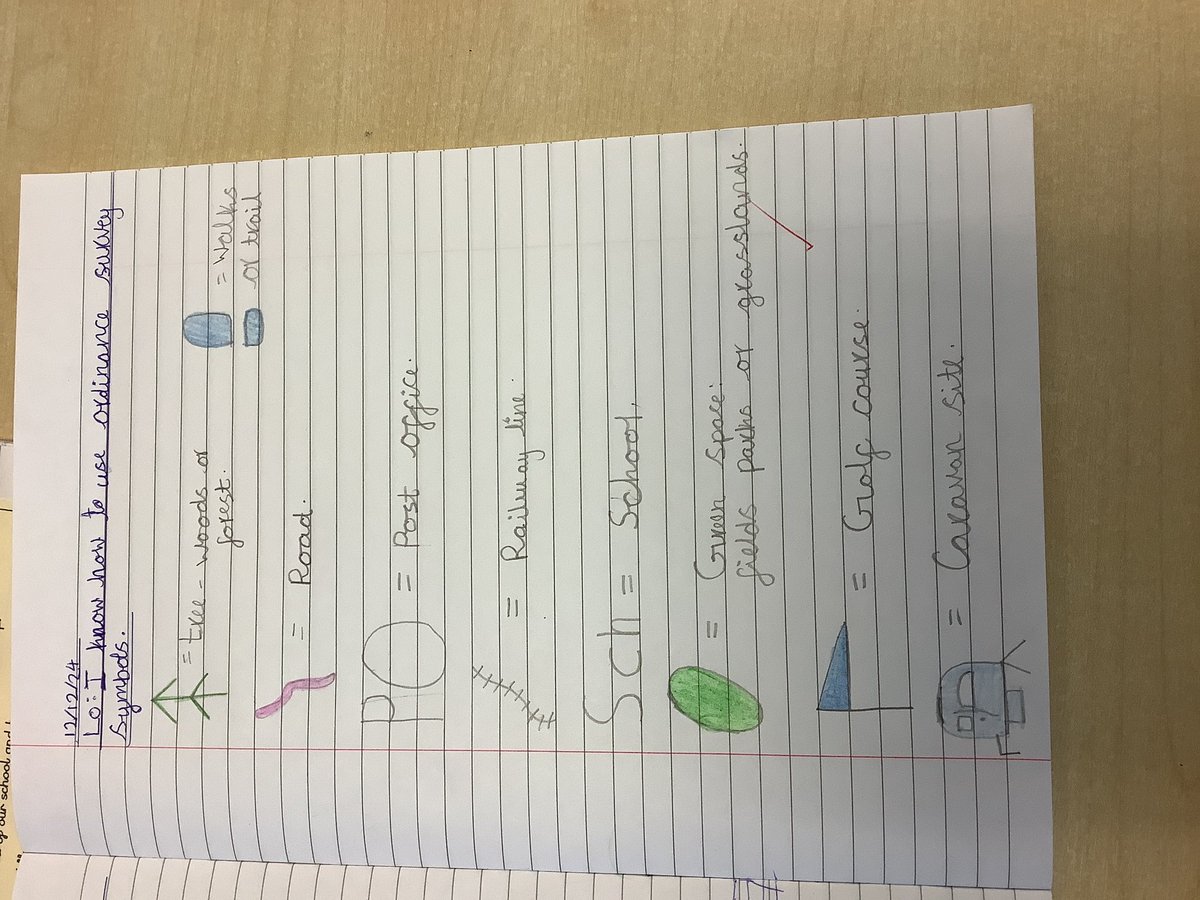 12/12/24
Lo: I know how to use ordinance survey
symbols.
= tree - woods or
forest.
= walks
or trail
= Road.
PO = Post office.
= Railway line.
Sch = School.
= Green space:
fields parks or grasslands.
= Golf course.
= Caravan site.
of our school and